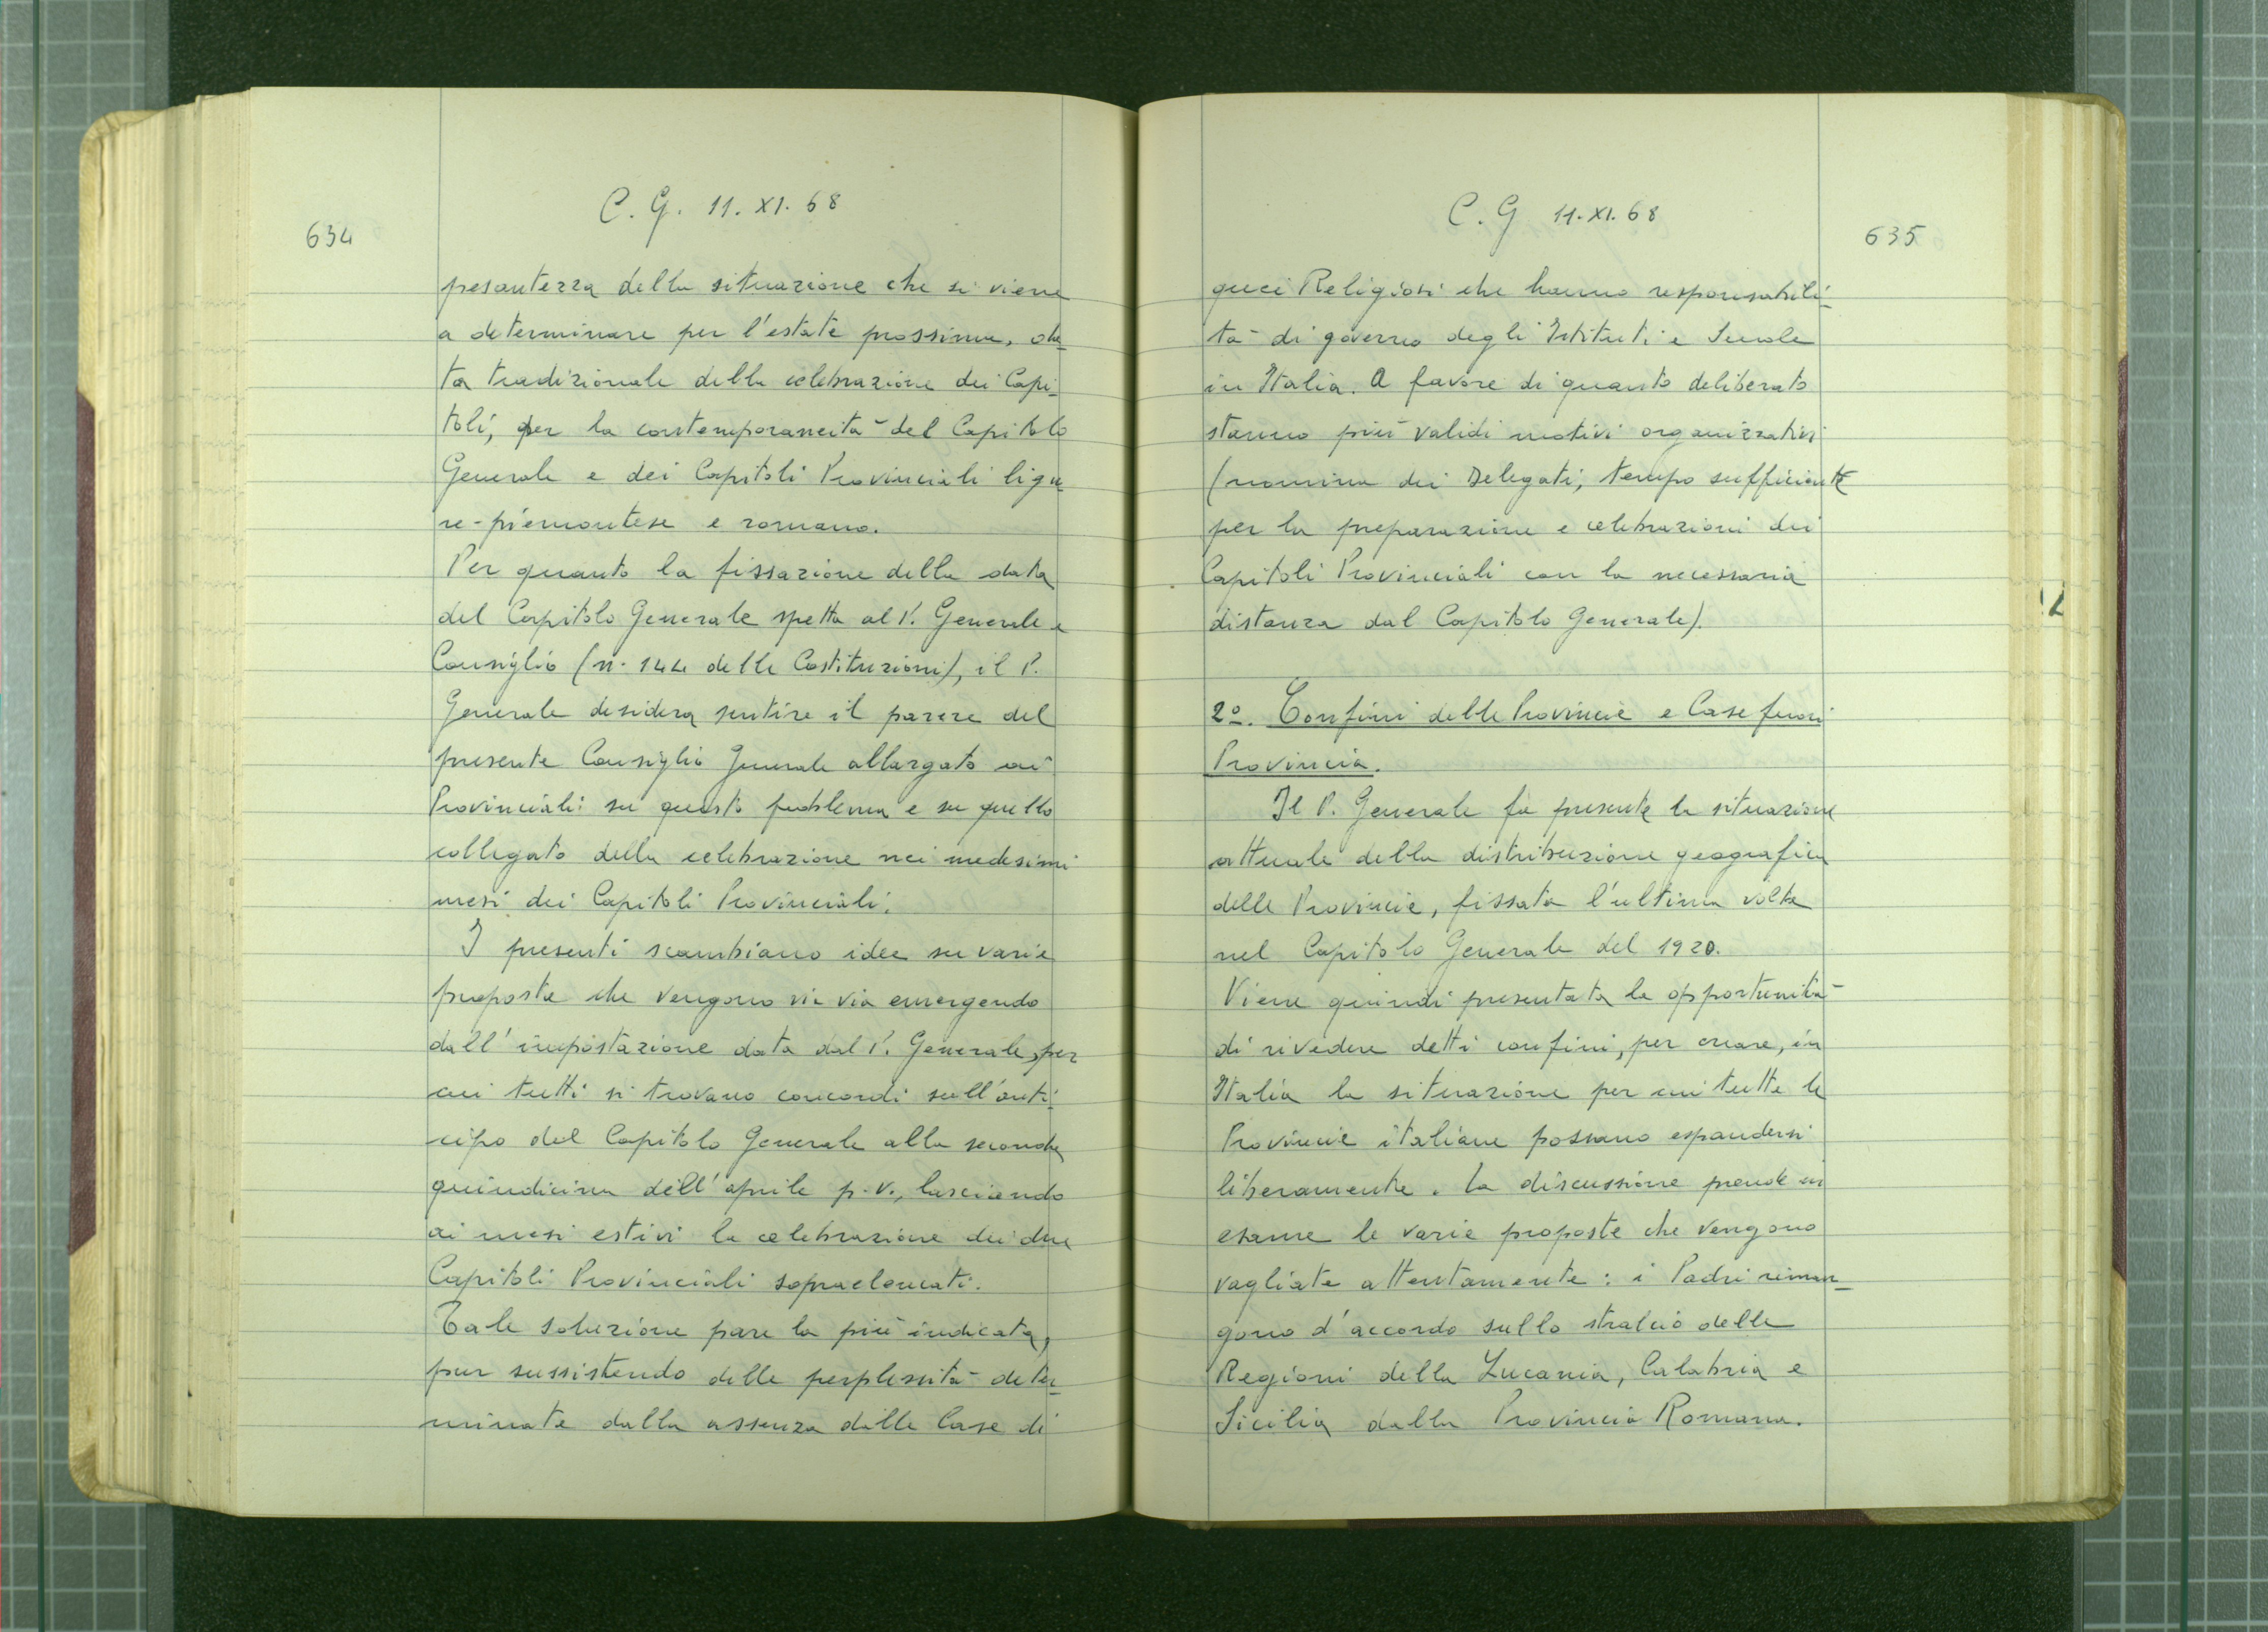 C. G. 11. XI. 68
634
pesantezza della situazione che si viene
a determinare per l'estate prossima, da_
ta tradizionale della celebrazione dei Capi_
toli, per la contemporaneità del Capitolo
Generale e dei Capitoli Provinciali ligu_
re-piemontese e romano.
Per quanto la fissazione della data
del Capitolo Generale spetta al P. Generale e
Consiglio (n. 144 delle Costituzioni), il P.
Generale desidera sentire il parere del
presente Consiglio Generale allargato ai
Provinciali su questo problema e su quello
collegato della celebrazione nei medesimi
mesi dei Capitoli Provinciali.
I presenti scambiano idee su varie
proposte che vengono via via emergendo
dall'impostazione data dal P. Generale, per
cui tutti si trovano concordi sull'anti_
cipo del Capitolo Generale alla seconda
quindicina dell'aprile p.v., lasciando
ai mesi estivi la celebrazione dei due
Capitoli Provinciali sopraelencati.
Tale soluzione pare la più indicata,
pur sussistendo delle perplessità deter_
minate dalla assenza dalle Case di
C. G 11. XI. 68
635
quei Religiosi che hanno responsabili_
tà di governo degli Istituti e Scuole
in Italia. A favore di quanto deliberato
stanno più validi motivi organizzativi
(nomina dei Delegati, tempo sufficiente
per la preparazione e celebrazioni dei
Capitoli Provinciali con la necessaria
distanza dal Capitolo Generale).
2º. Confini delle Provincie e Case fuori
Provincia.
Il P. Generale fa presente la situazione
attuale della distribuzione geografica
delle Provincie, fissata l'ultima volta
nel Capitolo Generale del 1920.
Viene quindi presentata la opportunità
di rivedere detti confini, per creare, in
Italia la situazione per cui tutte le
Provincie italiane possano espandersi
liberamente. La discussione prende in
esame le varie proposte che vengono
vagliate attentamente: i Padri riman_
gono d'accordo sullo stralcio delle
Regioni della Lucania, Calabria e
Sicilia dalla Provincia Romana.